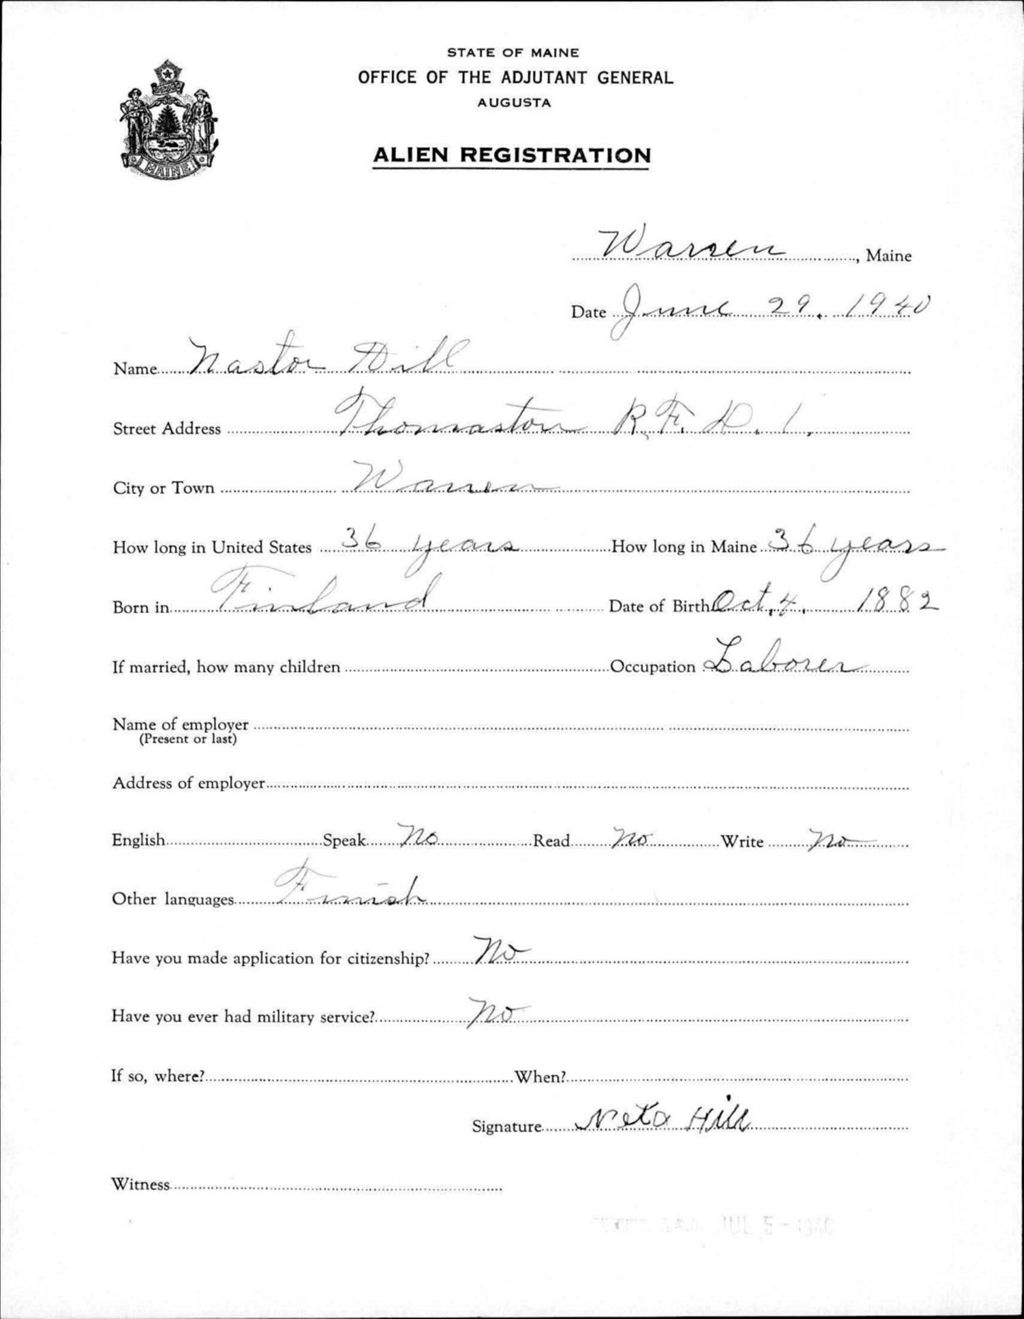 STATE OF MAINE
OFFICE OF THE ADJUTANT GENERAL
AUGUSTA
ALIEN REGISTRATION
MAINE
Warren, Maine
Date June 29, 1940
Name Nastor Hill
Street Address Thomaston R.F.D. 1.
City or Town Warren
How long in United States 36 years How long in Maine 36 years
Born in Finland Date of Birth Oct, 4, 1882
If married, how many children Occupation Laborer
Name of employer
(Present or last)
Address of employer
English Speak No Read No Write No
Other languages Finish
Have you made application for citizenship? No
Have you ever had military service? No
If so, where? When?
Signature Hill
Witness
JUL 5 - 1940